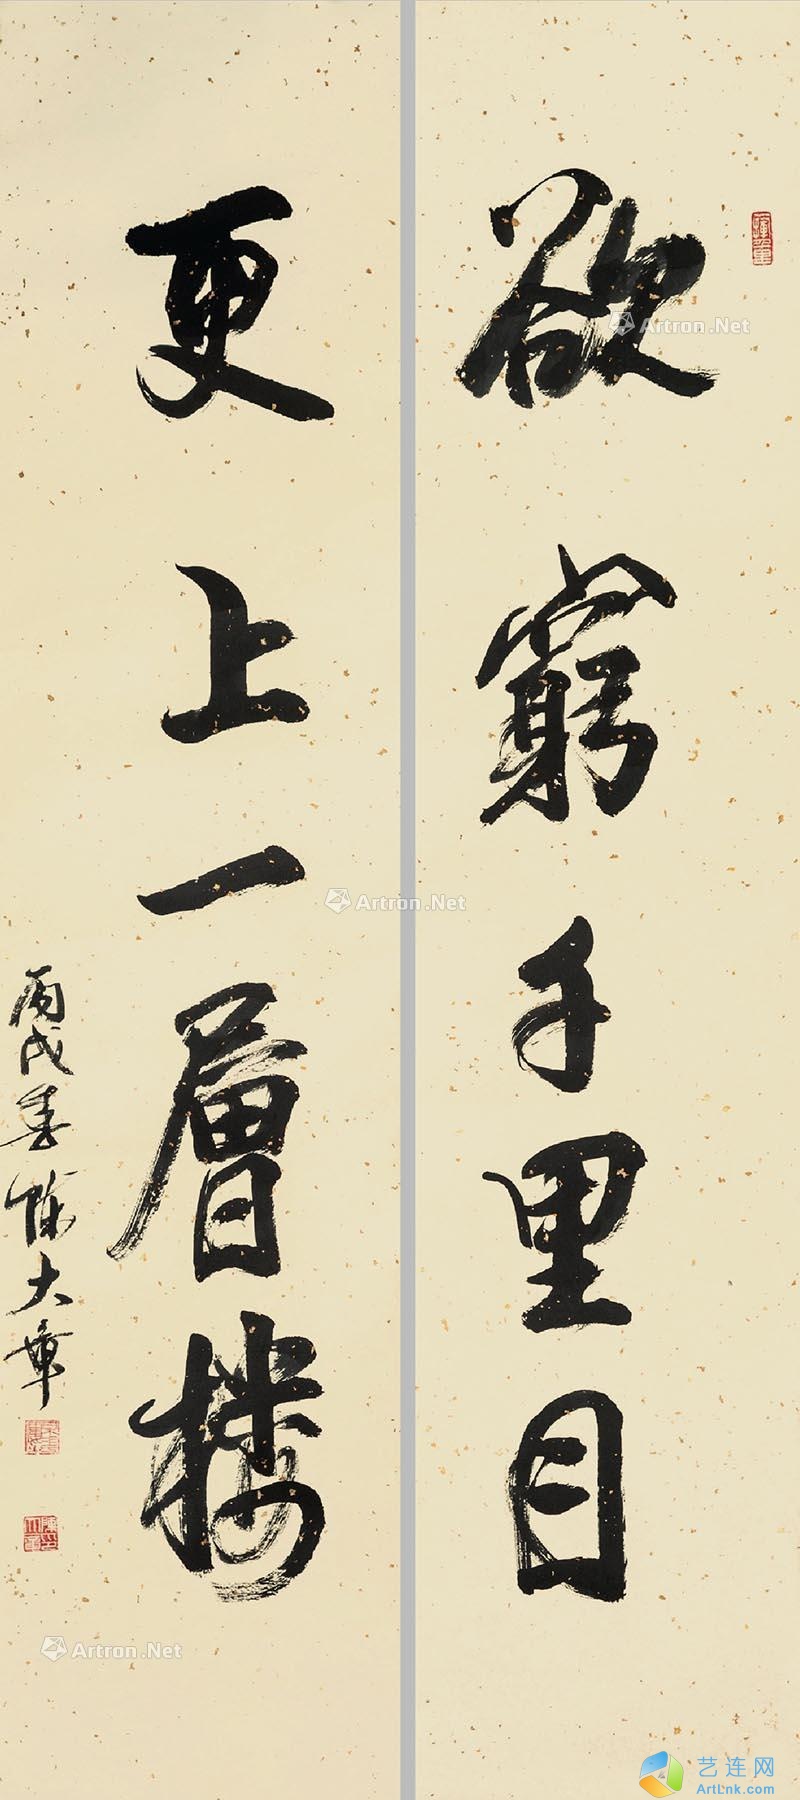 欲窮千里目
更上一層楼
丙戌春陈大章
Artron.Net
Artron.Net
Artron.Net
艺连网
ArtLnk.com